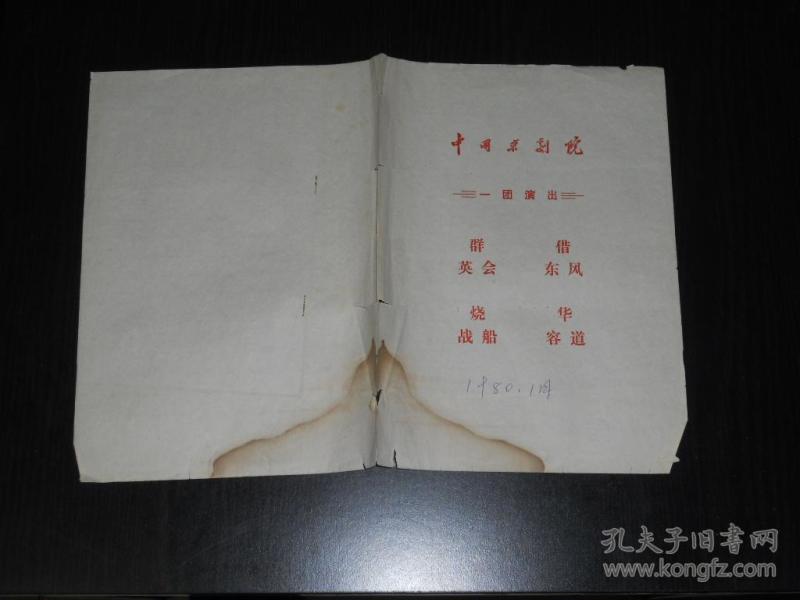 中国京剧院
一团演出
群 借
英会 东风
烧 华
战船 容道
1980.1月
孔夫子旧书网
www.kongfz.com